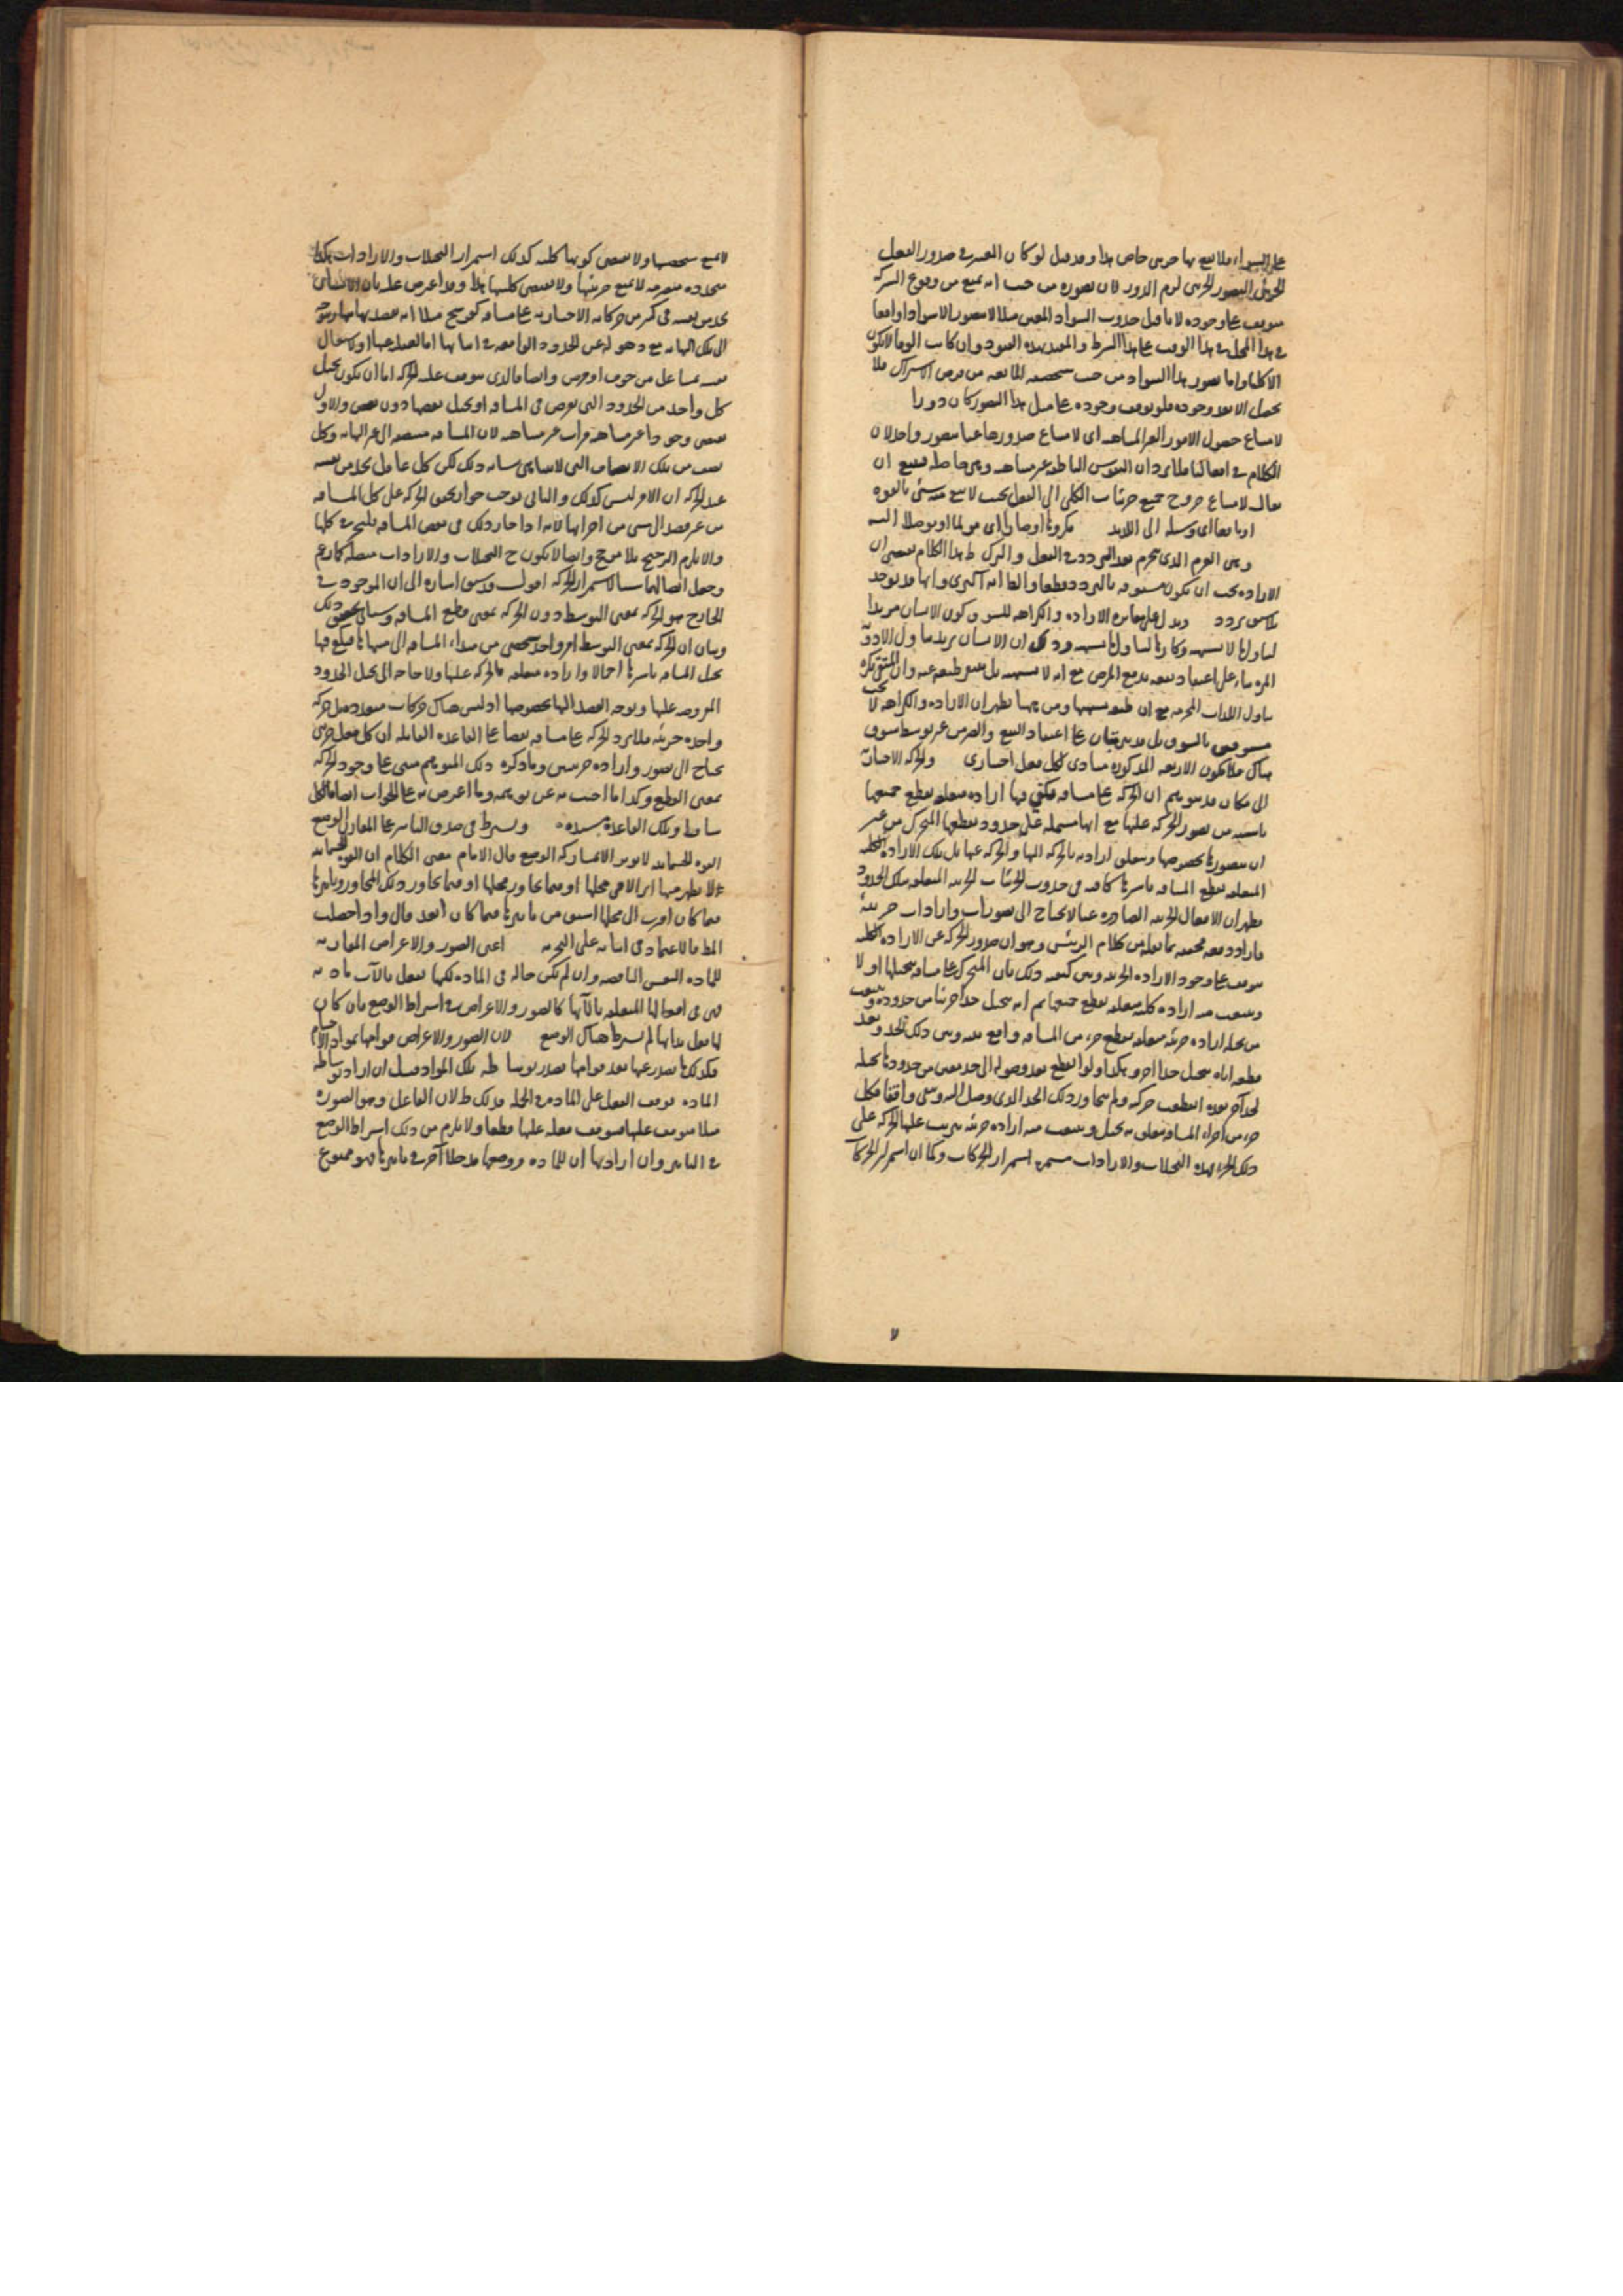 على السواء فلا يقع بها جزئي خاص هذا وقد قيل لو كان المعتبر في صدور الفعل
الجزئي التصور الجزئي لزم الدور لان تصوره من حيث انه يمنع من وقوع الشركة
يتوقف على وجوده لانا قبل حدوث السواد المعين مثلا لا نتصور الا سوادا واقعا
في هذا المحل في هذا الوقت على هذا الشرط والمقيد بهذه القيود وان كانت الوفا لا يكون
الا كليا واما تصور هذا السواد من حيث شخصيته المانعة من فرض الاشتراك فلا
يحصل الا بعد وجوده فلو توقف وجوده على مثل هذا التصور كان دورا
لامتناع حصول الامور الغير المتناهية اى لامتناع صدورها عنا متصور واحد لان
الكلام في افعالنا فلا يرد ان النفوس الناطقة غير متناهية وهي حاصلة فيمتنع ان
يقال لامتناع خروج جميع جزئيات الكلي الى الفعل بحيث لا يبقى منه شيء بالقوة
او نافعا اى وسيلة الى اللذيذ مكروها او ضارا اى مولما او موصلا اليه
وهي العزم الذى يجزم بعد التردد في الفعل والترك ظ هذا الكلام يقتضى ان
الارادة يجب ان يكون مسبوقة بالتردد قطعا والظ انه اكثرى وانها قد توجد
بلا سبق تردد ويدل على مغايرة الارادة والكراهة للشوق كون الانسان مريدا
لتناول ما لا يشتهيه وكارها لتناول ما يشتهيه وذلك ان الانسان يريد تناول الادوية
المرة بناء على اعتقاد نفعه بدفع المرض مع انه لا يشتهيه بل ينفر طبعه عنه وان المتقى يكره
تناول اللذات المحرمة مع ان طبعه يشتهيها ومن ههنا يظهر ان الارادة والكراهة لا يجب
مسبوقين بالشوق بل قد يترتبان على اعتقاد النفع والضر من غير توسط شوق
هناك فلا يكون الاربعة المذكورة مبادى لكل فعل اختيارى والحركة الاختيارية
الى مكان قد يتوهم ان الحركة على مسافة يكفي فيها ارادة متعلقة بقطع جميعها
ناشية من تصور الحركة عليها مع انها مشتملة على حدود يقطعها المتحرك من غير
ان يتصورها بخصوصها ويتعلق ارادته بالحركة اليها والحركة عنها بل تلك الارادة الكلية
المتعلقة بقطع المسافة باسرها كافية في حدوث الجزئيات الجزئية المتعلقة بتلك الحدود
فظهر ان الافعال الجزئية الصادرة عنا لا يحتاج الى تصورات وارادات جزئية
فاراد دفعه بحجته بما نقله من كلام الرئيس وهو ان صدور الحركة عن الارادة الكلية
يتوقف على وجود الارادة الجزئية وبين كيفية ذلك بان المتحرك على مسافة يتخيلها اولا
وينبعث منه ارادة كلية متعلقة بقطع جميعها ثم انه يتخيل حدا جزئيا من حدودها وينبعث
من تخيله ارادة جزئية متعلقة بقطع جزء من المسافة واقع بينه وبين ذلك الحد وبعد
قطعه اياه يتخيل حدا آخر وهكذا ولو انقطع بعد وصوله الى حد معين من حدودها تخيله
لحد آخر بعده انقطعت حركته ولم يتجاوز ذلك الحد الذى وصل اليه وبقى واقفا فكل
جزء من اجزاء المسافة يتعلق به تخيل وينبعث منه ارادة جزئية يترتب عليها الحركة على
ذلك الجزء فهذه التخيلات والارادات مستمرة استمرار الحركات وكما ان استمرار الحركات
لا يمنع شخصيتها ولا يقتضى كونها كلية كذلك استمرار التخيلات والارادات هكذا
متجددة متصرمة لا يمنع جزئيتها ولا يقتضى كليتها هذا وقد اعترض عليه بان الانسان
يجد من نفسه في كثير من حركاته الاختيارية على مسافة كفرسخ مثلا انه يقصد نهايتها ويتوجه
الى تلك النهاية مع ذهوله عن الحدود الواقعة في اثنائها
كل واحد من الحدود التي تفرض في المسافة او يتخيل بعضها دون بعض والاول
يقتضى وجود ما غير متناهية مرات غير متناهية لان المسافة منقسمة الى غير النهاية وكل
عند الحركة ان الامر ليس كذلك والثاني يوجب جواز تحقق الحركة على كل المسافة
من غير قصد الى شيء من اجزائها لانه اذا جاز ذلك في بعض المسافة فليجز في كلها
والا يلزم الترجيح بلا مرجح وايضا لا يكون ح التخيلات والارادات متصلة كما زعم
وجعل اتصالهما سببا لاستمرار الحركة اقول قد سبق اشارة الى ان الموجود في
الخارج هو الحركة بمعنى التوسط دون الحركة بمعنى قطع المسافة وسيأتي تحقيق ذلك
وبيان ان الحركة بمعنى التوسط امر واحد شخصي من مبداء المسافة الى منتهاها فيكفي فيها
تخيل المسافة باسرها اجمالا وارادة متعلقة بالحركة عليها ولا حاجة الى تخيل الحدود
المفروضة عليها وتوجه القصد اليها بخصوصها اذ ليس هناك حركات متعددة بل حركة
واحدة جزئية فلا يرد الحركة على مسافة نقضا على القاعدة القائلة ان كل فعل جزئي
يحتاج الى تصور وارادة جزئيين وما ذكره ذلك المتوهم مبنى على وجود الحركة
بمعنى القطع وكذا ما اجيب به عن توهمه وما اعترض به على الجواب ايضا فالكل
ساقط وتلك القاعدة مستندة ويشترط في صدق التاثير على المقارن الوضع
القوة الجسمانية لا يؤثر الا بمشاركة الوضع قال الامام معنى الكلام ان القوة الجسمانية
لا يظهر منها اثر الا في محلها او فيما يجاور محلها او فيما يجاور ذلك المجاور وتاثيرها
فيما كان اقرب الى محلها اسبق من تاثيرها فيما كان ابعد قال واذا حصلت
المط فالاعتماد في اثباته على التجربة اعنى الصور والاعراض المقارنة
للمادة النفس الناقصة وان لم تكن حالة في المادة لكنها تفعل بالآت مادية
فهى في افعالها المتعلقة بالآتها كالصور والاعراض في اشتراط الوضع فان كان
لها فعل بذاتها لم يشترط هناك الوضع لان الصور والاعراض قوامها بمواد الاجسام
فكذلك ما يصدر عنها بعد قوامها يصدر بوساطة تلك المواد قيل ان اراد بوساطة
المادة توقف الفعل على المادة في الجملة فذلك ظ لان الفاعل وهو الصورة
مثلا يتوقف عليها فيتوقف فعله عليها قطعا ولا يلزم من ذلك اشتراط الوضع
في التاثير وان اراد بها ان للمادة ووضعها مدخلا آخر في تاثيرها فهو ممنوع